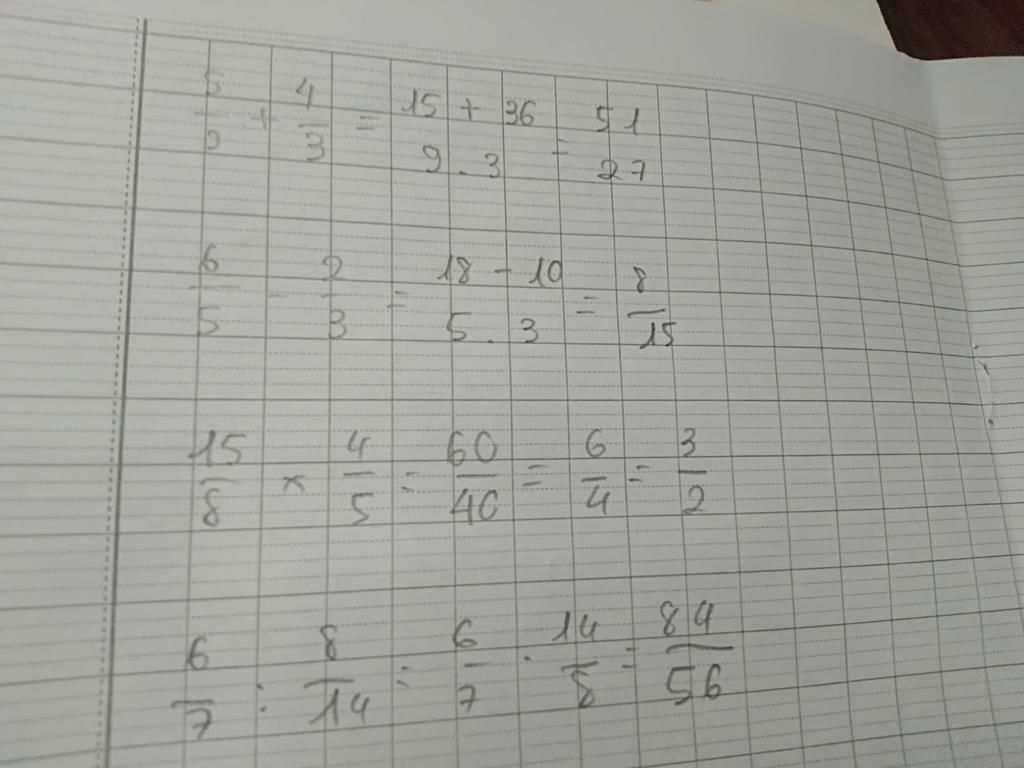 5/9 + 4/3 = 15 + 36 / 9 . 3 = 51/27
6/5 - 2/3 = 18 - 10 / 5 . 3 = 8/15
15/8 × 4/5 = 60/40 = 6/4 = 3/2
6/7 : 8/14 = 6/7 . 14/8 = 84/56